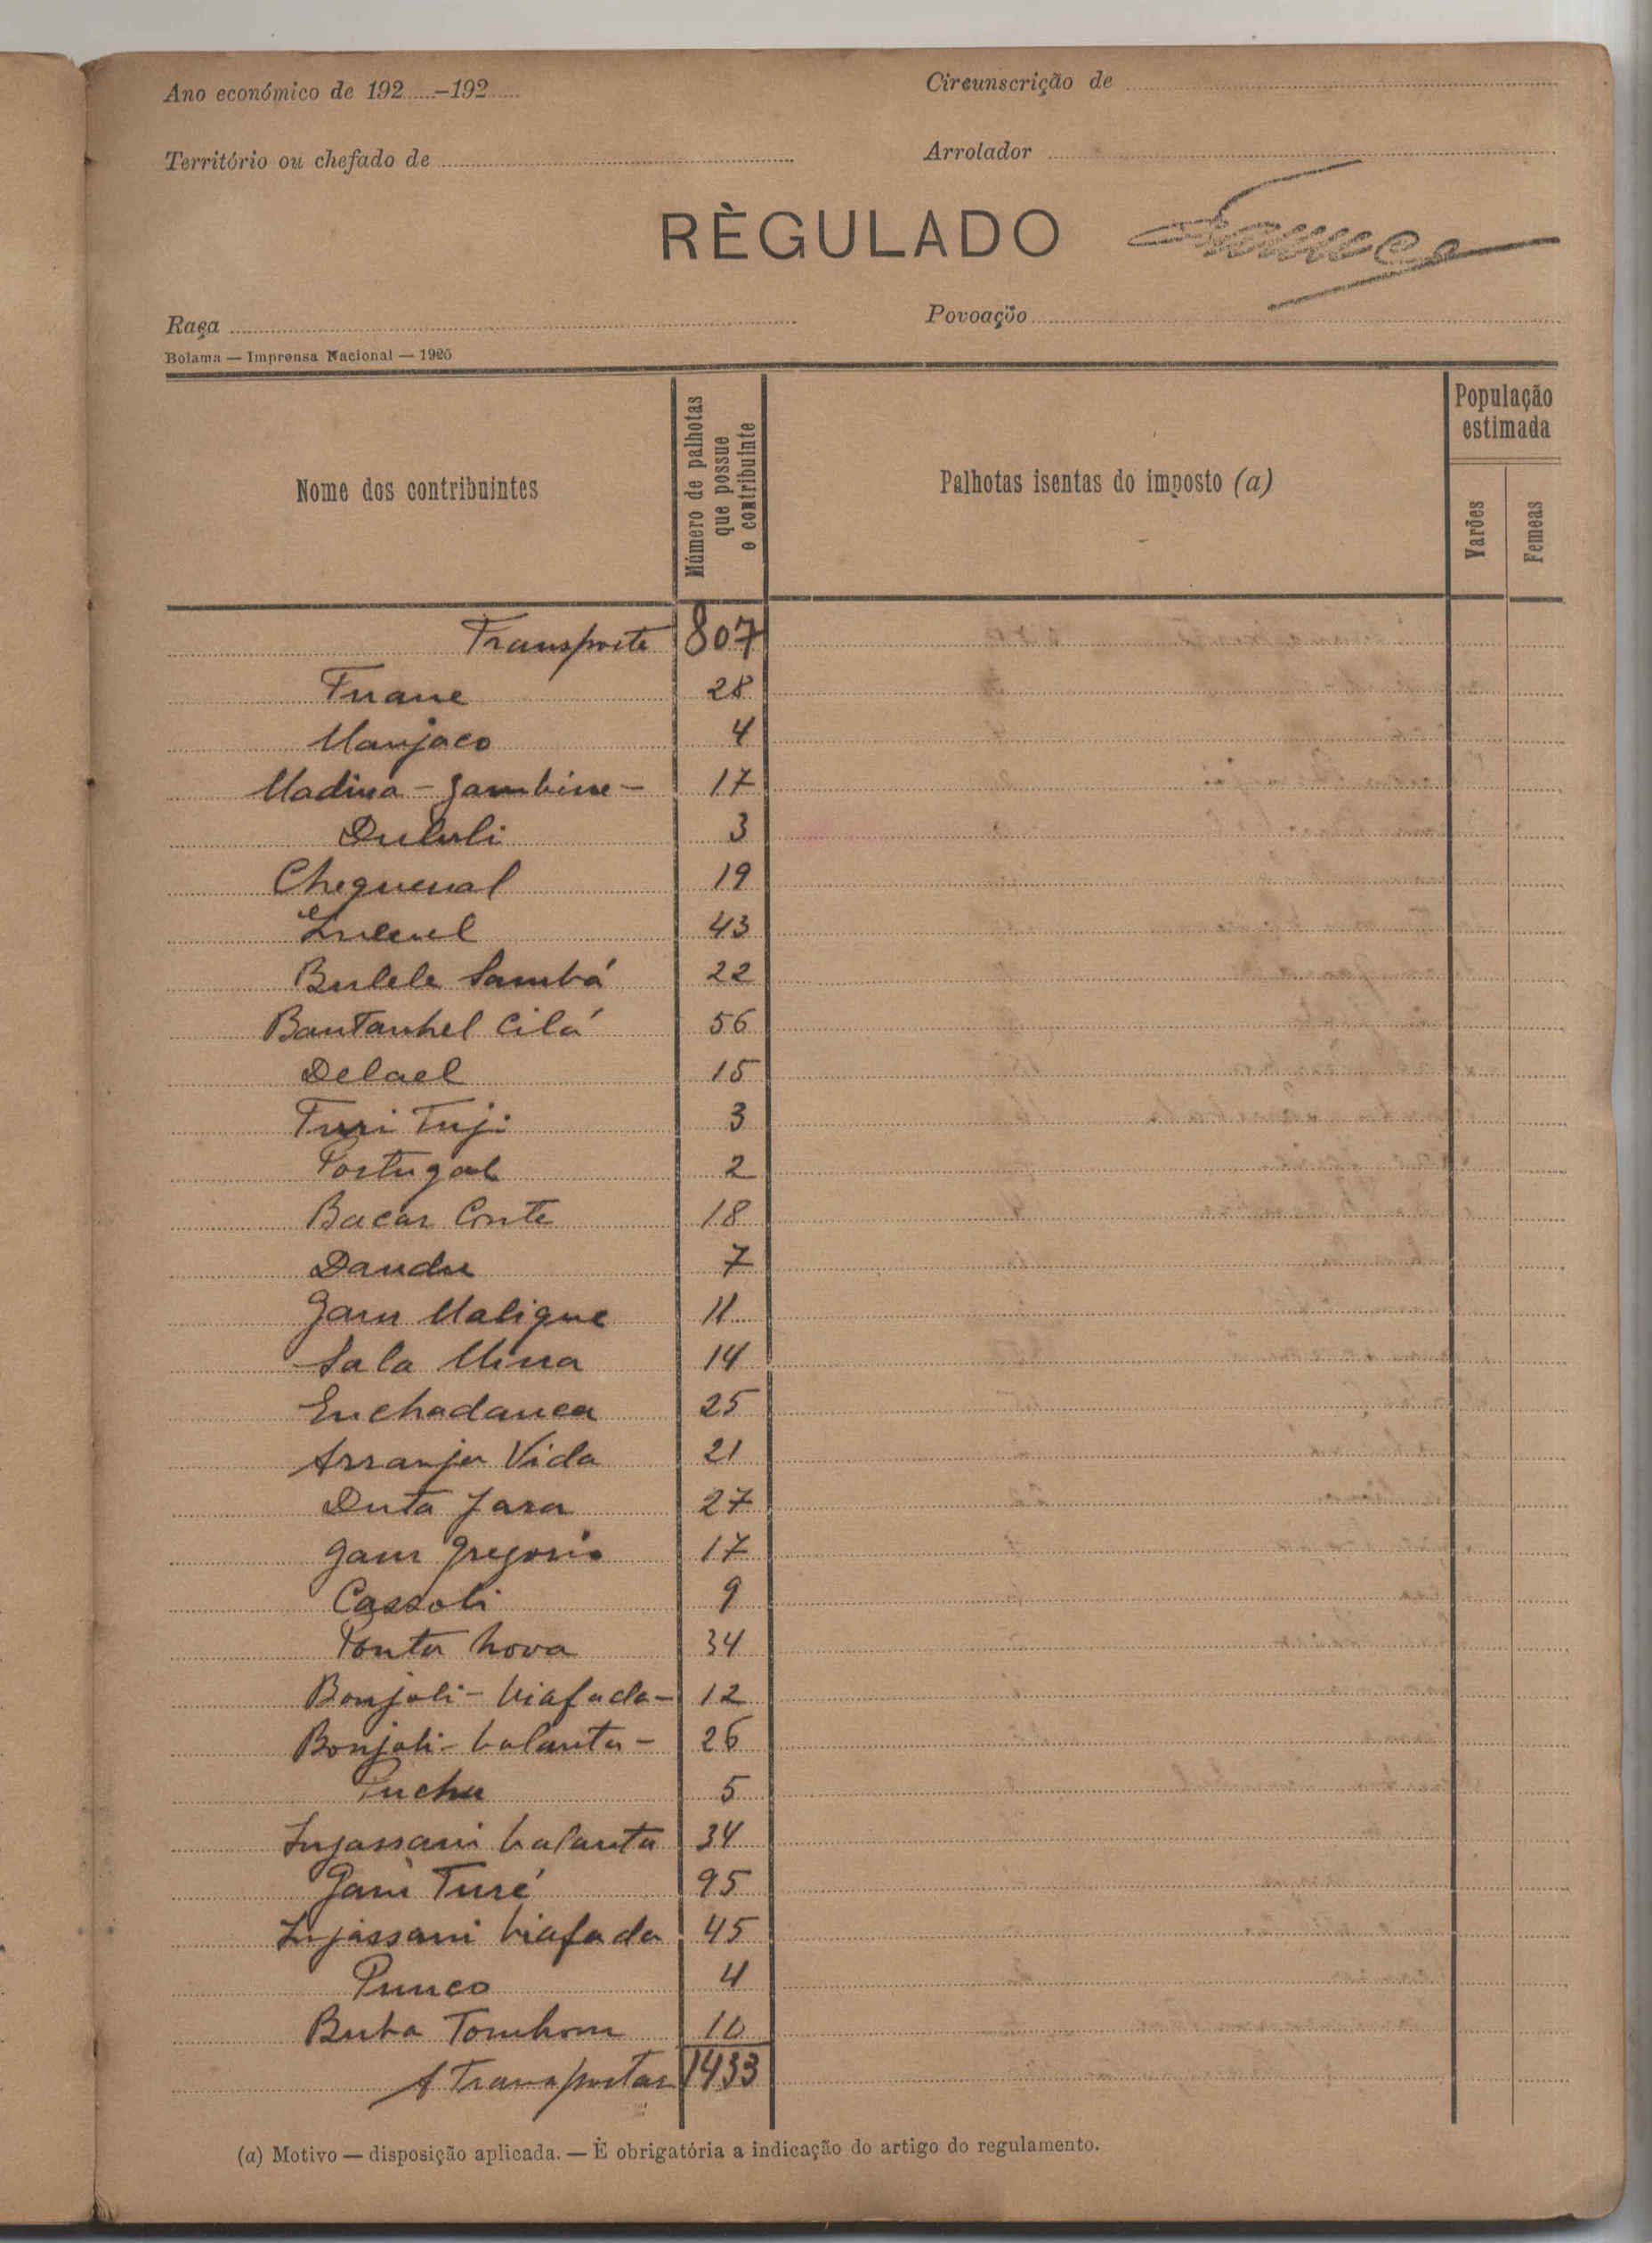 Ano económico de 192.....-192.....
Circunscrição de
Território ou chefado de
Arrolador
RÈGULADO
Raça
Povoação
Bolama — Imprensa Nacional — 1926
Nome dos contribuintes
Número de palhotas que possue o contribuinte
Palhotas isentas do imposto (a)
População estimada
Varões
Femeas
Transporte 807
Fuane 28
Manjaco 4
Madina - Gambine - 17
Dululi 3
Chequenal 19
43
Bulele Sambá 22
Bantanhel Cilá 56
Delael 15
Turi Tuji 3
Portugal 2
Bacar Conte 18
Dandu 7
Gam Malique 11
Sala Mina 14
Enchadanca 25
Arranja Vida 21
Duta Jara 27
Gam Gregorio 17
Cassoli 9
Ponta Nova 34
Bonjoli - biafada - 12
Bonjoli - balanta - 26
Puchu 5
Injassani balanta 34
Gam Turé 95
Injassani biafada 45
Punco 4
Buba Tombom 10
A Transportar 1433
(a) Motivo — disposição aplicada. — É obrigatória a indicação do artigo do regulamento.